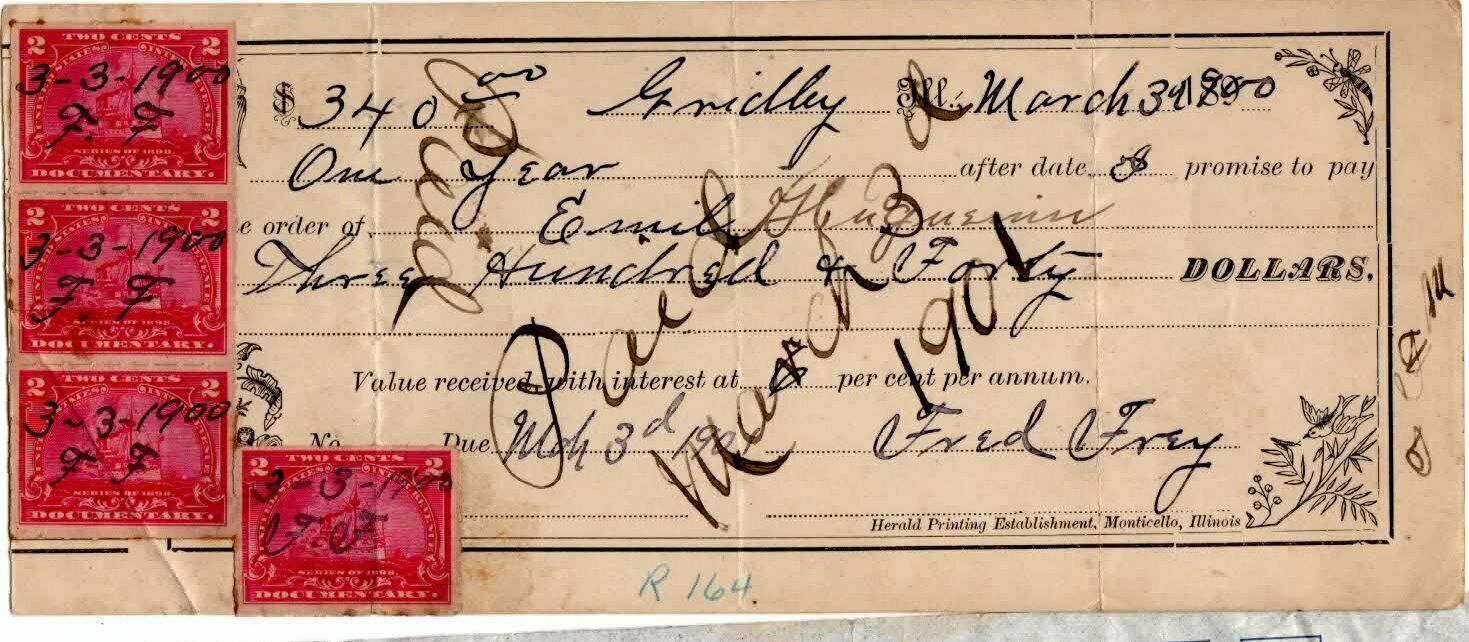 $ 340 00 Gridley Ill. March 3d 1900
One Year after date I promise to pay
e order of Emil Huguenin
Three Hundred & Forty DOLLARS,
Value received, with interest at per cent per annum.
No. Due Mch 3d 1901 Fred Frey
Herald Printing Establishment, Monticello, Illinois
Paid
Paid
March 3d
1901
2 TWO CENTS 2
UNITED STATES INTER. REVENUE
3-3-1900
F. F
SERIES OF 1898.
DOCUMENTARY.
2 TWO CENTS 2
UNITED STATES INTER. REVENUE
3-3-1900
F. F
SERIES OF 1898.
DOCUMENTARY.
2 TWO CENTS 2
UNITED STATES INTER. REVENUE
3-3-1900
F F
SERIES OF 1898.
DOCUMENTARY.
2 TWO CENTS 2
UNITED STATES INTER. REVENUE
3-3-1900
F. F
SERIES OF 1898.
DOCUMENTARY.
R 164